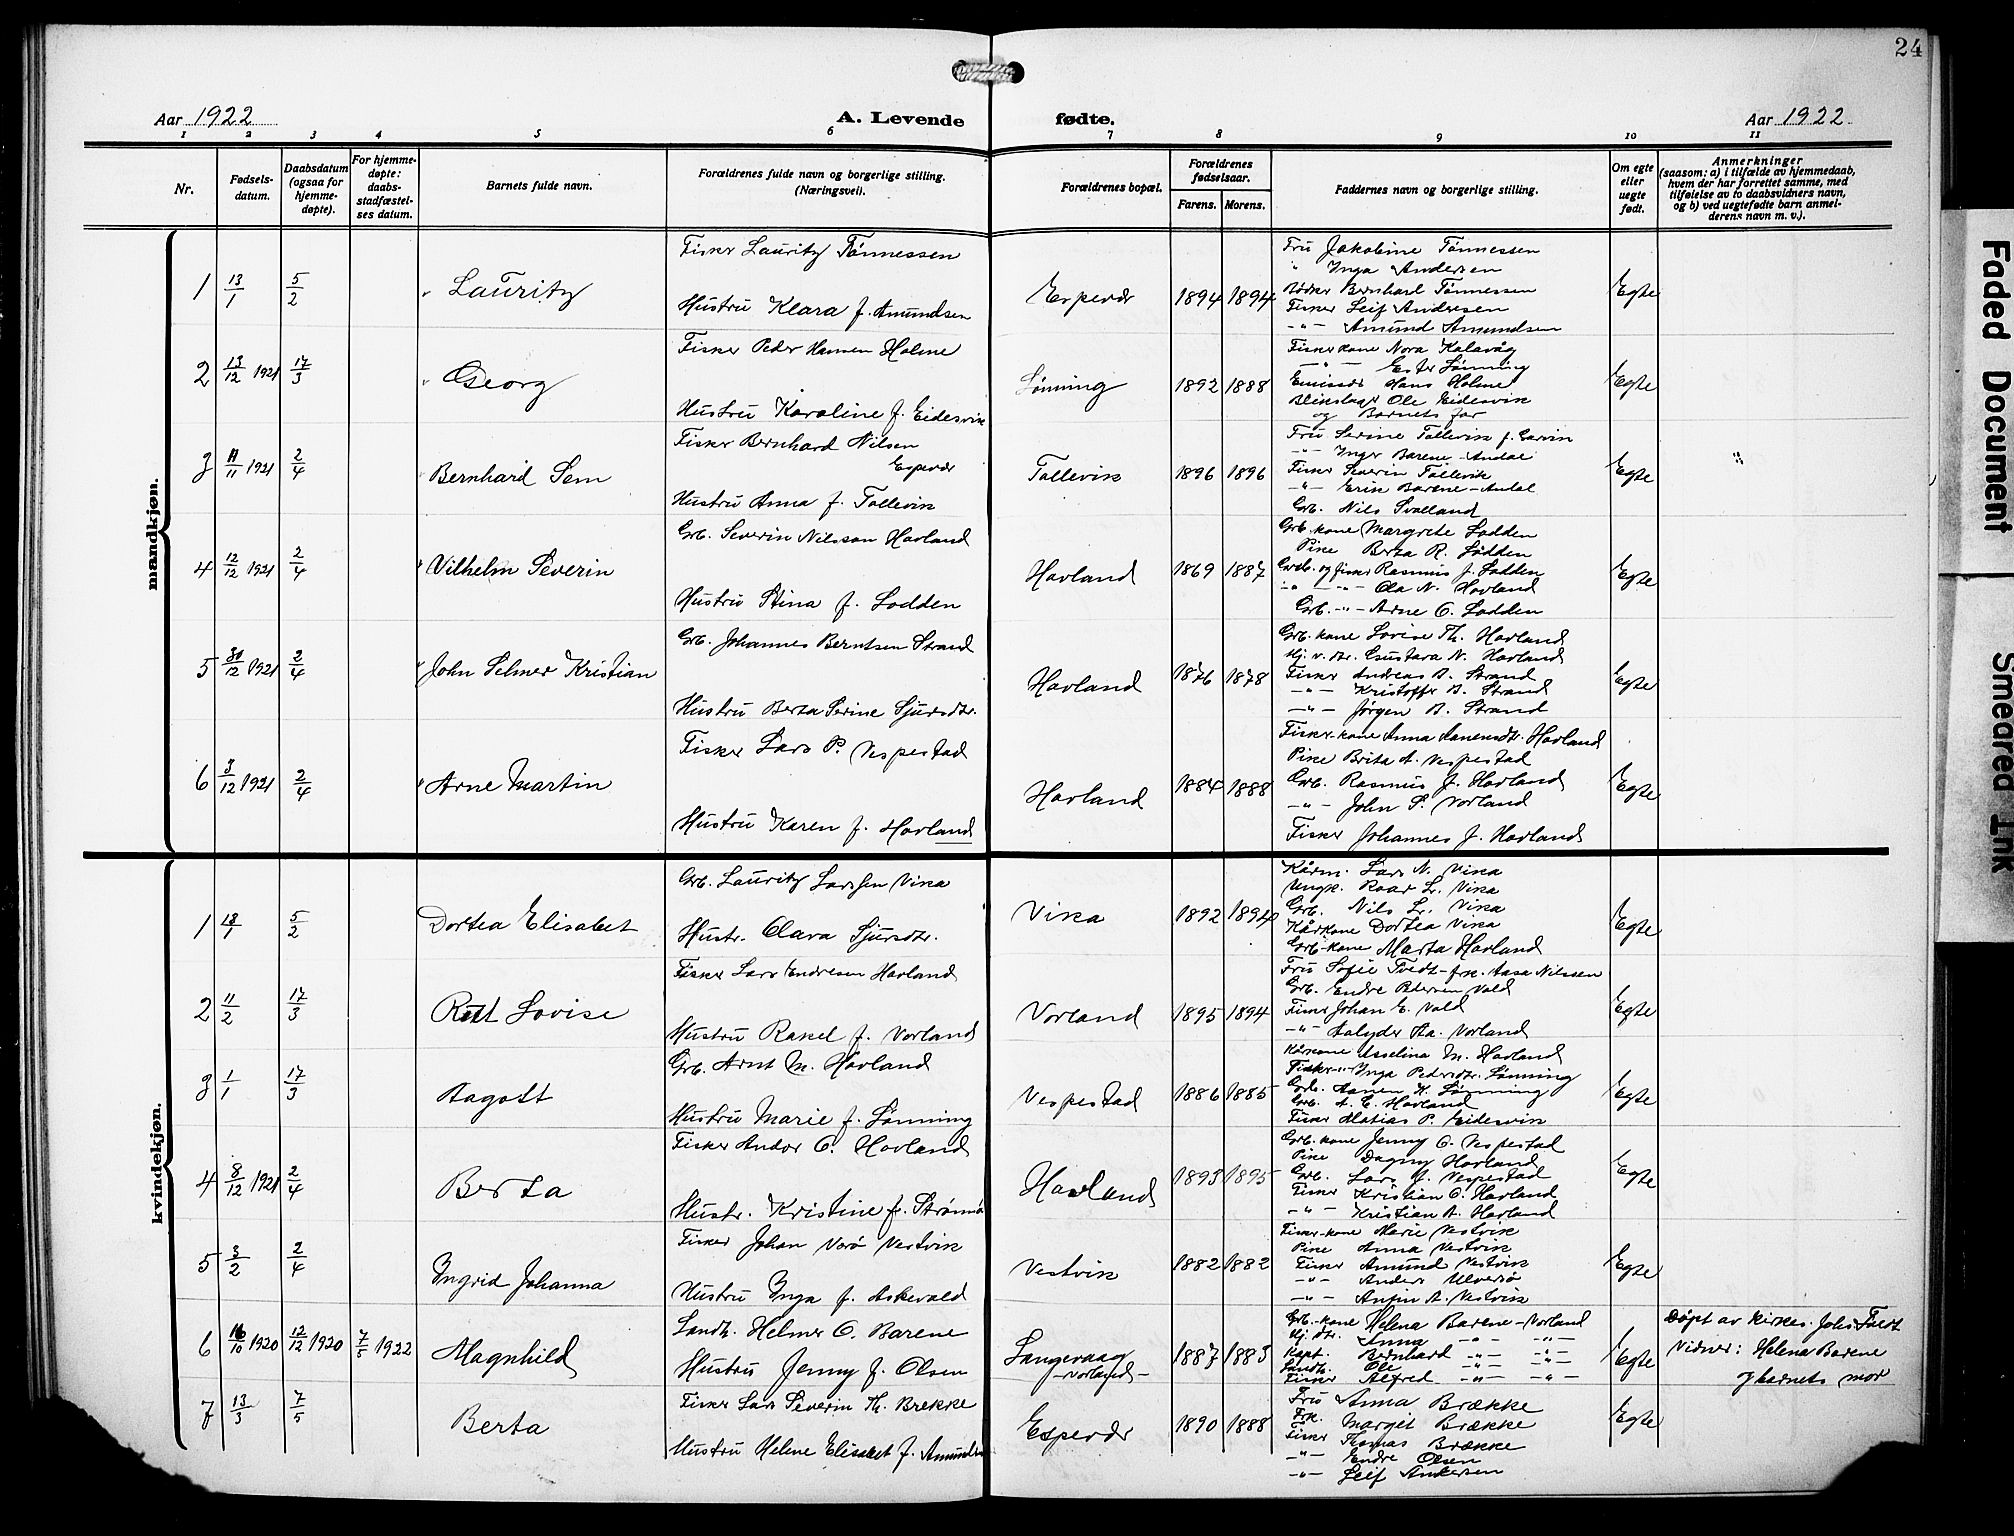 24
Aar 1922 A. Levende fødte. Aar 1922
1 2 3 4 5 6 7 8 9 10 11
Nr. Fødselsdatum. Daabsdatum (ogsaa for hjemmedøpte). For hjemmedøpte: daabsstadfæstelses datum. Barnets fulde navn. Forældrenes fulde navn og borgerlige stilling. (Næringsvei). Forældrenes bopæl. Forældrenes fødselsaar. Farens. Morens. Faddernes navn og borgerlige stilling. Om egte eller uegte født. Anmerkninger (saasom: a) i tilfælde av hjemmedaab, hvem der har forrettet samme, med tilføielse av to daabsvidners navn, og b) ved uegtefødte barn anmelderens navn m. v.).
mandkjøn.
1 13/1 5/2 Lauritz
Fisker Lauritz Tønnessen
Hustru Klara f. Amundsen
Espevær 1894 1894
Fru Jakobine Tønnessen
" Inga Andersen
Bødker Bernhard Tønnessen
Fisker Leif Andersen
-"- Amund Amundsen
Egte
2 13/12 1921 17/3 Georg
Fisker Peder Hansen Holme
Hustru Karoline f. Eidesvik
Lønning 1892 1888
Fiskerkone Nora Kalavåg
-"- Ester Lønning
Emissær Hans Holme
Blikslager Ole Eidesvik
og Barnets far
Egte
3 11/11 1921 2/4 Bernhard Sem
Fisker Bernhard Nilsen
Espevær
Hustru Anna f. Tollevik
Tollevik 1896 1896
Fru Serine Tollevik f. Garvin
-"- Inger Barene-Andal
Fisker Severin Tollevik
-"- Erik Barene-Andal
Grb. Nils Svolland
Egte "
4 12/12 1921 2/4 Vilhelm Severin
Grb. Severin Nilsson Hovland
Hustru Stina f. Lodden
Hovland 1869 1887
Grb. kone Margrete Lodden
Pike Berta R. Lodden
Gardb. og fisker Rasmus J. Lodden
-"- -"- Ola N. Hovland
Grb. -"- Arne O. Lodden
Egte
5 30/12 1921 2/4 John Selmer Kristian
Grb. Johannes Berntsen Strand
Hustru Berta Serine Sjursdtr.
Hovland 1876 1878
Grb. kone Lovise Th. Hovland
Hj. v. dtr. Gustava N. Hovland
Fisker Andreas B. Strand
-"- Kristoffer B. Strand
-"- Jørgen B. Strand
Egte
6 3/12 1921 2/4 Arne Martin
Fisker Lars P. Vespestad
Hustru Karen f. Hovland
Hovland 1884 1888
Fisker-kone Anna Aanensdtr. Hovland
Pike Brita A. Vespestad
Grb. Rasmus J. Hovland
-"- John S. Vorland
Fisker Johannes J. Hovland
Egte
kvindekjøn.
1 18/1 5/2 Dortea Elisabet
Grb. Lauritz Larssen Vika
Hustr. Olava Sjursdtr.
Vika 1892 1894
Kårm. Lars N. Vika
Ungk. Roar L. Vika
Grb. Nils L. Vika
Kårkone Dortea Vika
Grb-kone Marta Hovland
Egte
2 11/2 17/3 Rut Lovise
Fisker Lars Endresen Hovland
Hustru Rakel f. Vorland
Vorland 1895 1894
Fru Sofie Tvedt-frk. Aasa Nilssen
Grb. Endre Petersen Vold
Fisker Johan E. Vold
-"- Aa. Vorland
Egte
3 1/1 17/3 Bagott
Grb. Arnt M. Hovland
Hustru Marie f. Lønning
Vespestad 1886 1885
Kårkone Asselina M. Hovland
Fisker-"- Inga Pedersdtr. Lønning
Grb. Aanen K. Lønning
Grb. A. E. Hovland
Fisker Matias P. Eidesvik
Egte
4 8/12 1921 2/4 Berta
Fisker Andor O. Hovland
Hustr. Kristine f. Strømø
Hovland 1893 1895
Grb. kone Jenny O. Vespestad
Pike Dagny Hovland
Grb. Lars A. Vespestad
Fisker Kristian O. Hovland
-"- Kristian A. Hovland
Egte
5 3/2 2/4 Ingrid Johanna
Fisker Johan Vorø Vestvik
Hustru Inga f. Askevold
Vestvik 1882 1882
Fisker-kone Marie Vestvik
Pike Anna Vestvik
Fisker Amund Vestvik
-"- Anders Ulversø
-"- Anfin A. Vestvik
Egte
6 16/10 1920 12/12 1920 7/5 1922 Magnhild
Landh. Helmer O. Barene
Hustru Jenny f. Olsen
Langevaag
-Vorland-
1887 1883
Grb.-kone Helena Barene-Vorland
Hj. dtr. Anna -"- -"-
Kapt. Bernhard -"- -"-
Landh. Ole -"- -"-
Fisker Alfred -"- -"-
Egte
Døpt av kirkes. Johs Tvedt
Vidner: Helena Barene
og barnets mor
7 13/3 7/5 Berta
Fisker Lars Severin Th. Brekke
Hustru Helene Elisabet f. Amundsen
Espevær 1890 1888
Fru Anna Brække
Frk. Margit Brække
Fisker Thomas Brække
-"- Endre Olsen
-"- Leif Andersen
Egte
Faded Document
Smeared Ink